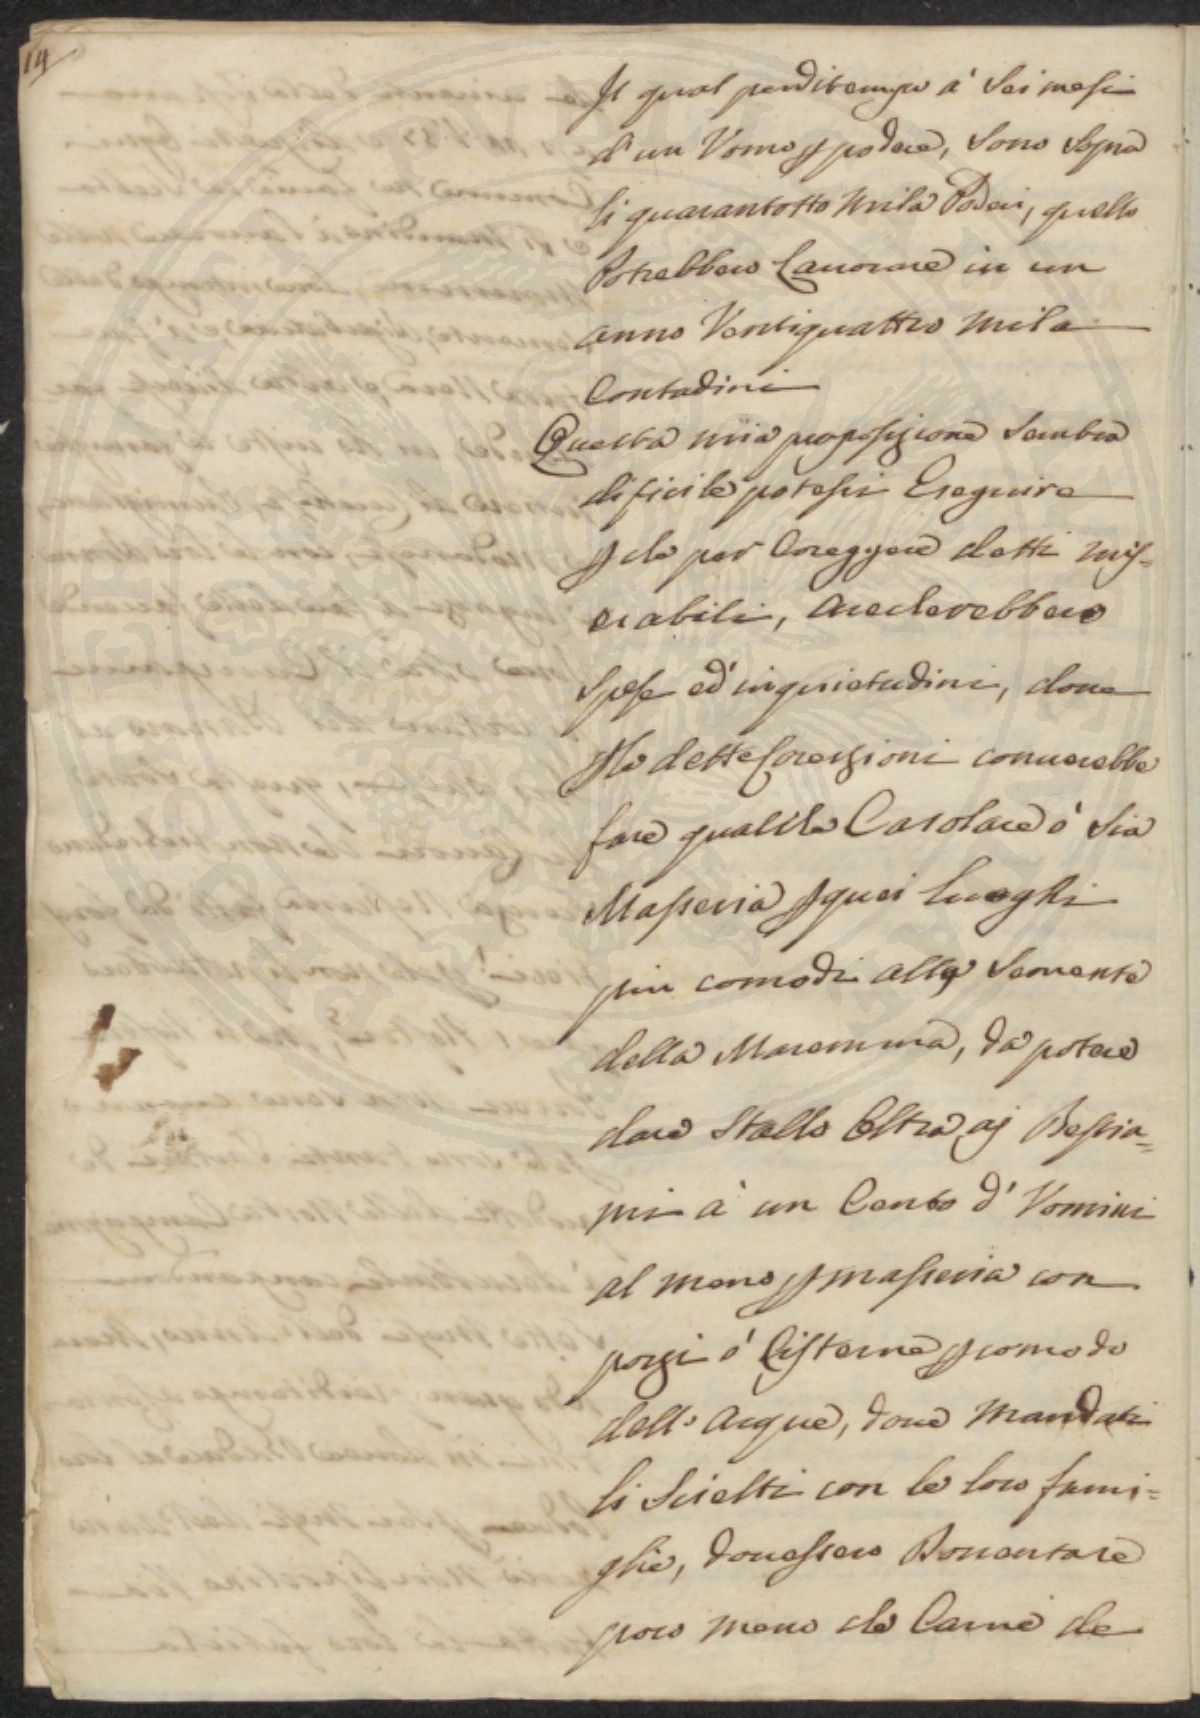 14
Il qual perditempo à Sei mesi
d'un Vomo p podere, sono sopra
li quarantotto mila Poderi, quello
Potrebbero Lauorare in un
anno Ventiquattro mila
Contadini
Questa mia proposizione Sembra
dificile potersi Eseguire
p che per Coreggere detti mis=
erabili, Acederebbero
Spese ed' inquietudini, doue
p le dette Corezioni conuerebbe
fare qualche Casolare ò Sia
Masseria p quei luoghi
piu comodi alle Semente
della Maremma, da potere
dare Stallo Oltra ai Bestia=
mi à un Cento d' Vomini
al meno p masseria con
pozzi ò Cisterne p comodo
dell' Acque, doue Mandati
li Scielti con le loro fami=
glie, douessero Douentare
poco meno che Carne de